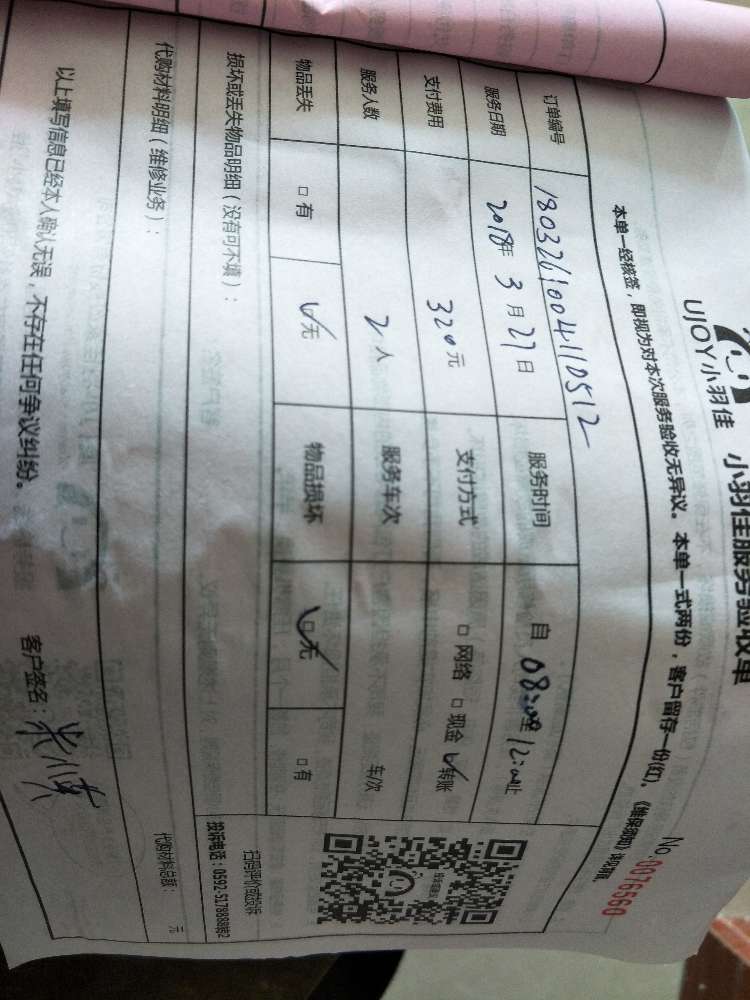 UJOY小羽佳 小羽佳服务验收单
No.0076560
本单一经核签，即视为对本次服务验收无异议。本单一式两份，客户留存一份(红)。
订单编号 1803261004110512
服务日期 2018年3月27日 服务时间 自08:00至12:00止
支付费用 320元 支付方式 □网络 □现金 ☑转账
服务人数 2人 服务车次 车/次
物品丢失 □有 ☑无 物品损坏 ☑无 □有
损坏或丢失物品明细（没有可不填）：
扫码评价或投诉
投诉电话：0592-5178888转2
代购材料明细（维修业务）：
代购材料总额： 元
以上填写信息已经本人确认无误，不存在任何争议纠纷。 客户签名：